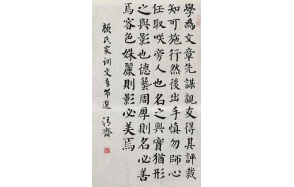 學為文章先謀親友得其評裁
知可施行然後出手慎勿師心
任取咲旁人也名之與實猶形
之與影也德藝周厚則名必善
焉容色姝麗則影必美焉
顏氏家訓文章節選